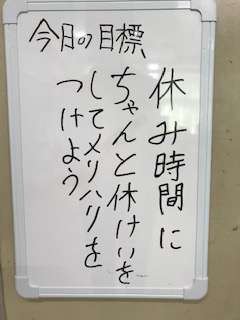 今日の目標
休み時間に
ちゃんと休けいを
してメリハリを
つけよう